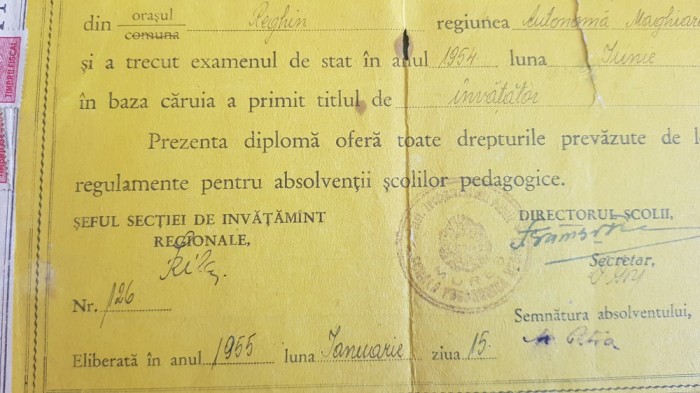 din orașul comuna Reghin regiunea Autonomă Maghiară
și a trecut examenul de stat în anul 1954 luna Iunie
în baza căruia a primit titlul de învățător
Prezenta diplomă oferă toate drepturile prevăzute de
regulamente pentru absolvenții școlilor pedagogice.
ȘEFUL SECȚIEI DE INVĂȚĂMÎNT
REGIONALE,
DIRECTORUL ȘCOLII,
Secretar,
Nr. 126
Semnătura absolventului,
Eliberată în anul 1955 luna Ianuarie ziua 15
TIMBRU FISCAL
MUREȘ